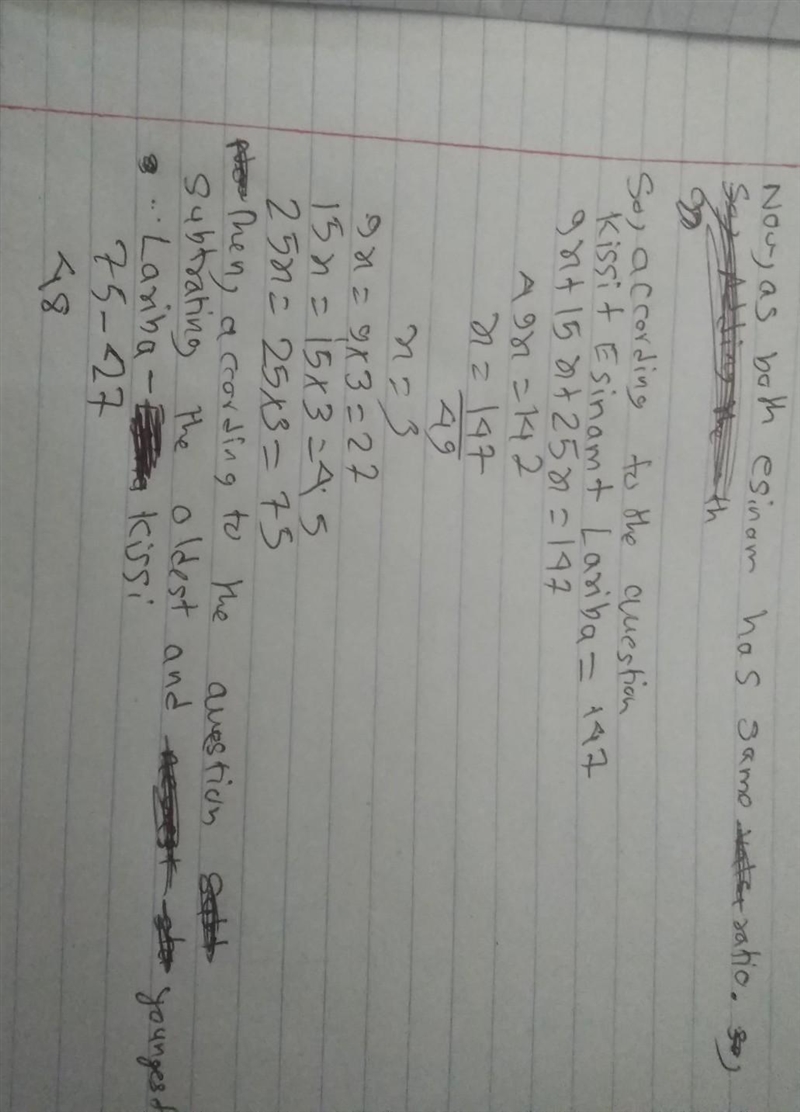 Now, as both esinam has same ratio. so,
So, according to the question
Kissi + Esinam + Lariba = 147
9x + 15x + 25x = 147
49x = 142
x = 147
49
x = 3
9x = 9x3 = 27
15x = 15x3 = 45
25x = 25x3 = 75
Then, according to the question
subtrating the oldest and youngest
∴ Lariba - Kissi
75 - 27
48